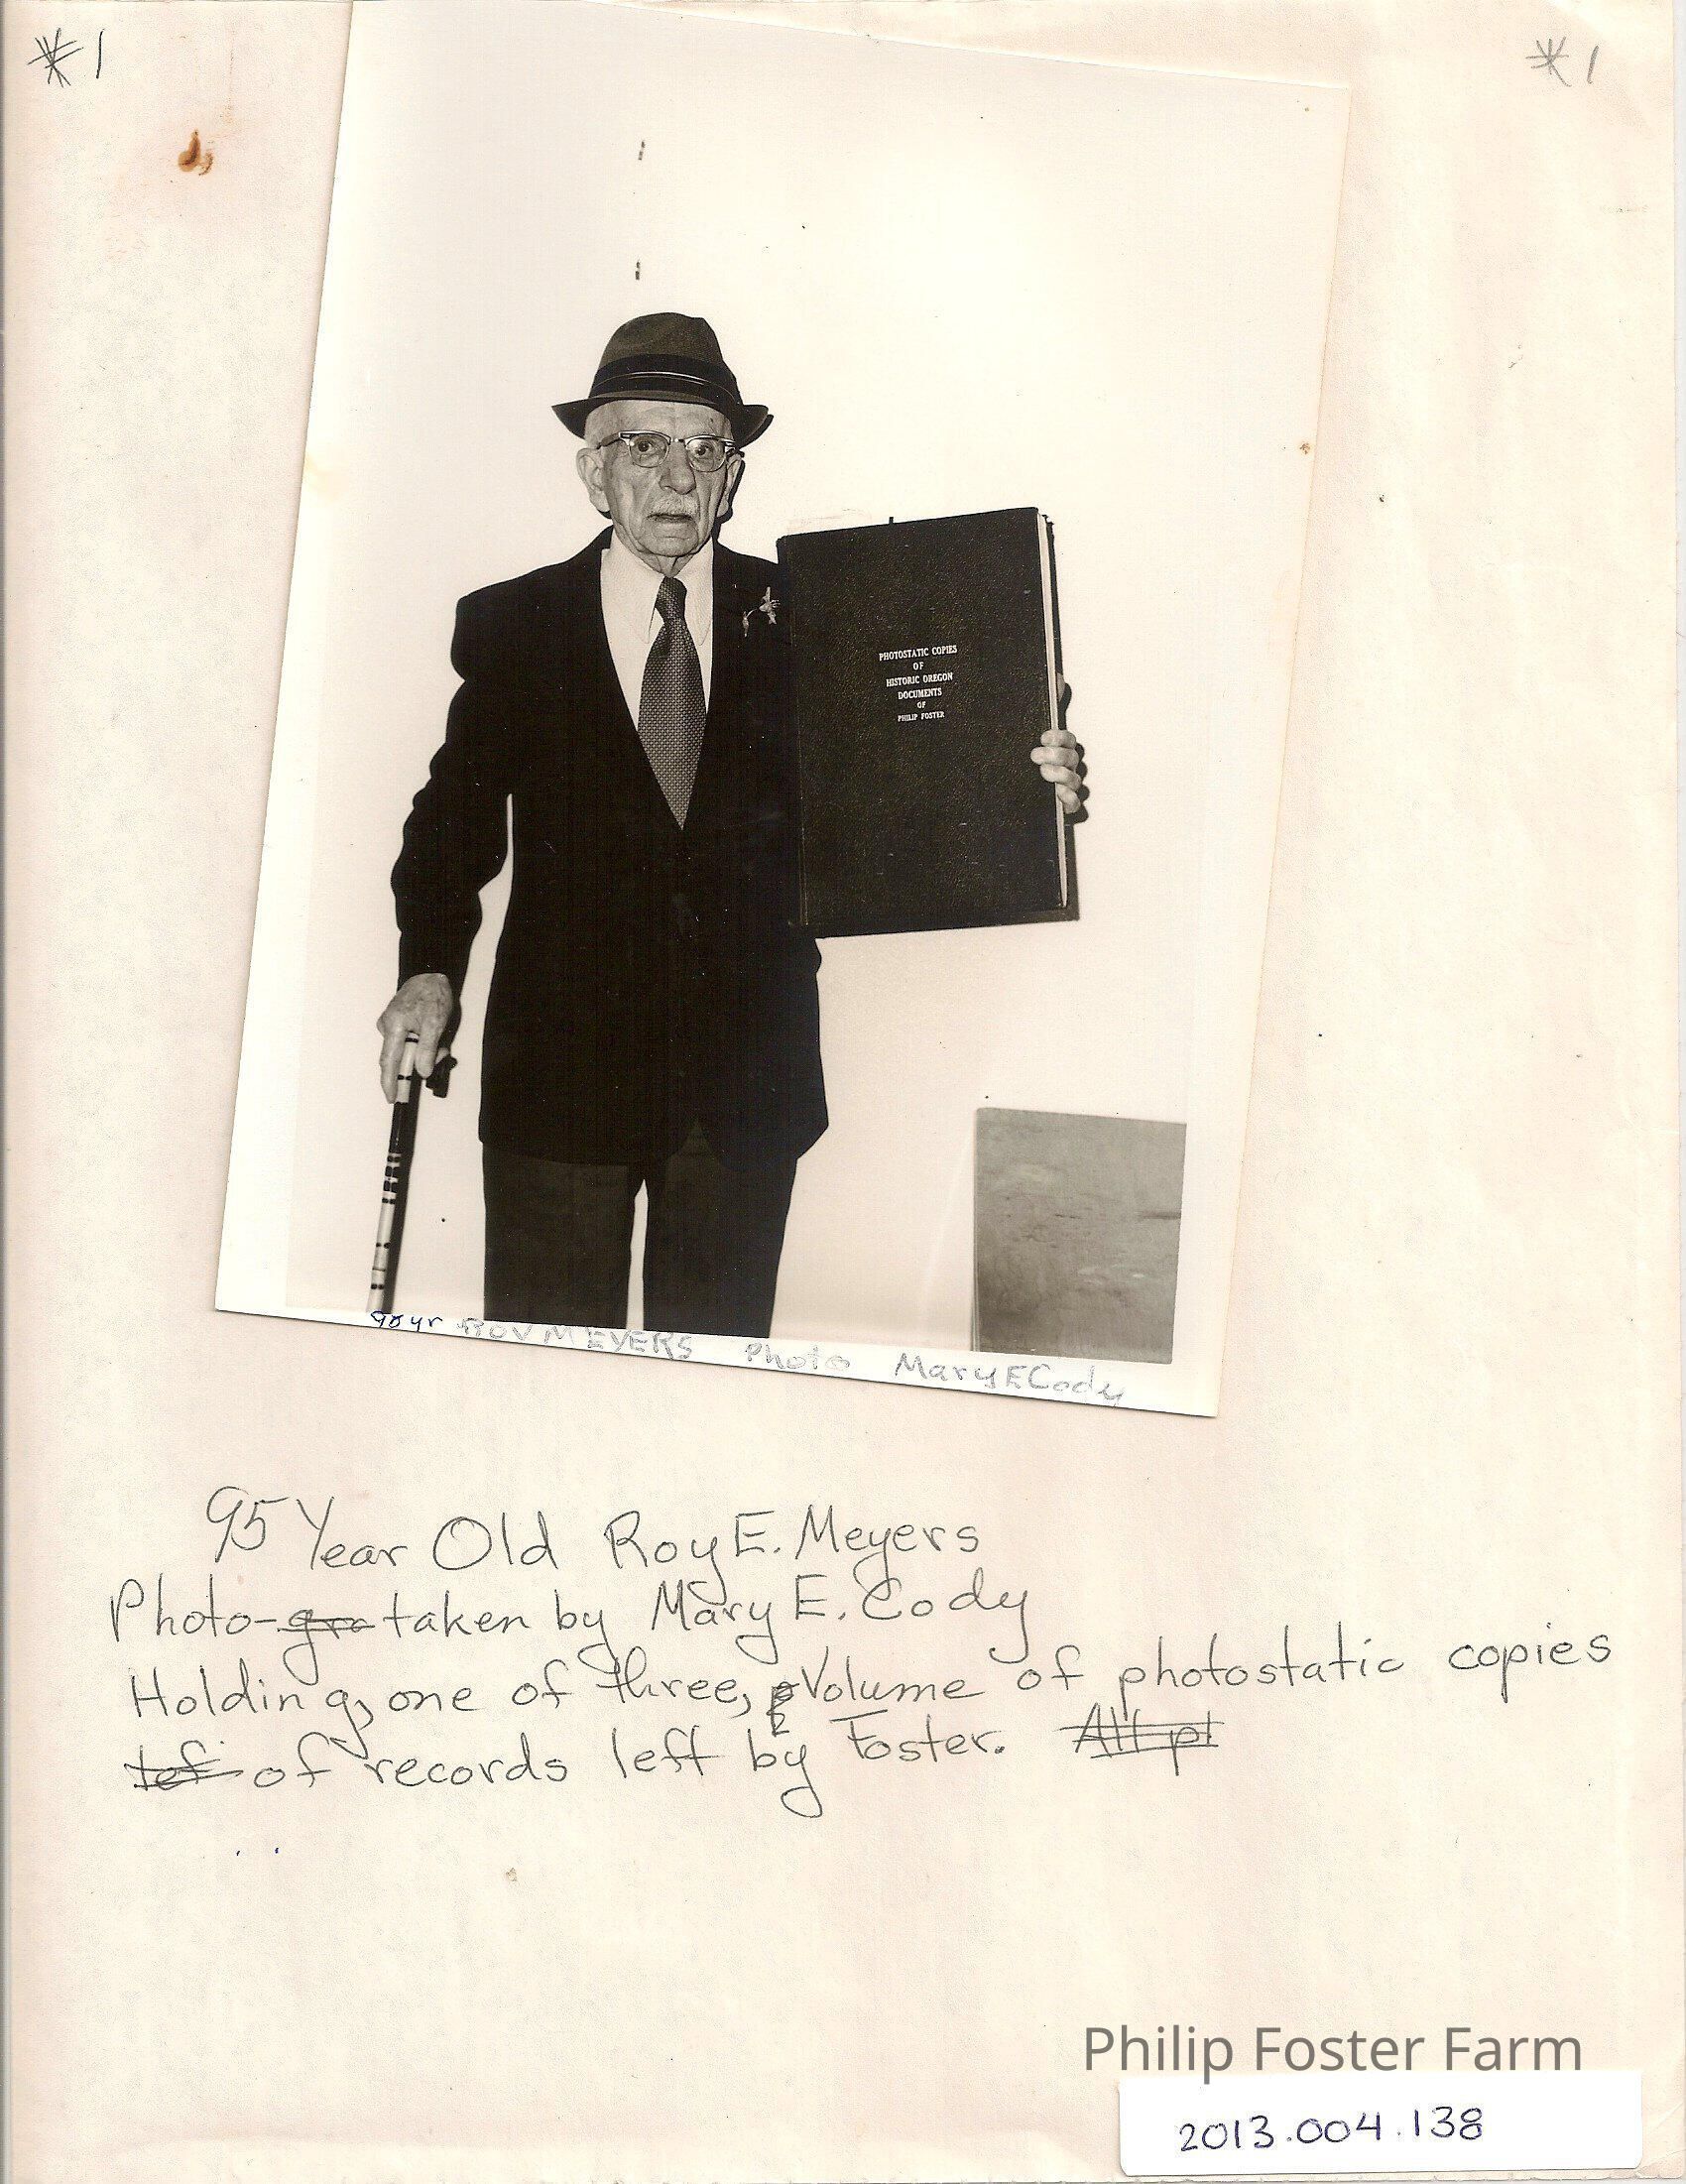 *1 *1
PHOTOSTATIC COPIES
OF
HISTORIC OREGON
DOCUMENTS
OF
PHILIP FOSTER
yr ROY MEYERS Photo Mary E Cody
95 Year Old Roy E. Meyers
Photo-gra taken by Mary E. Cody
Holding, one of three, Volume of photostatic copies
of records left by Foster.
Philip Foster Farm
2013.004.138